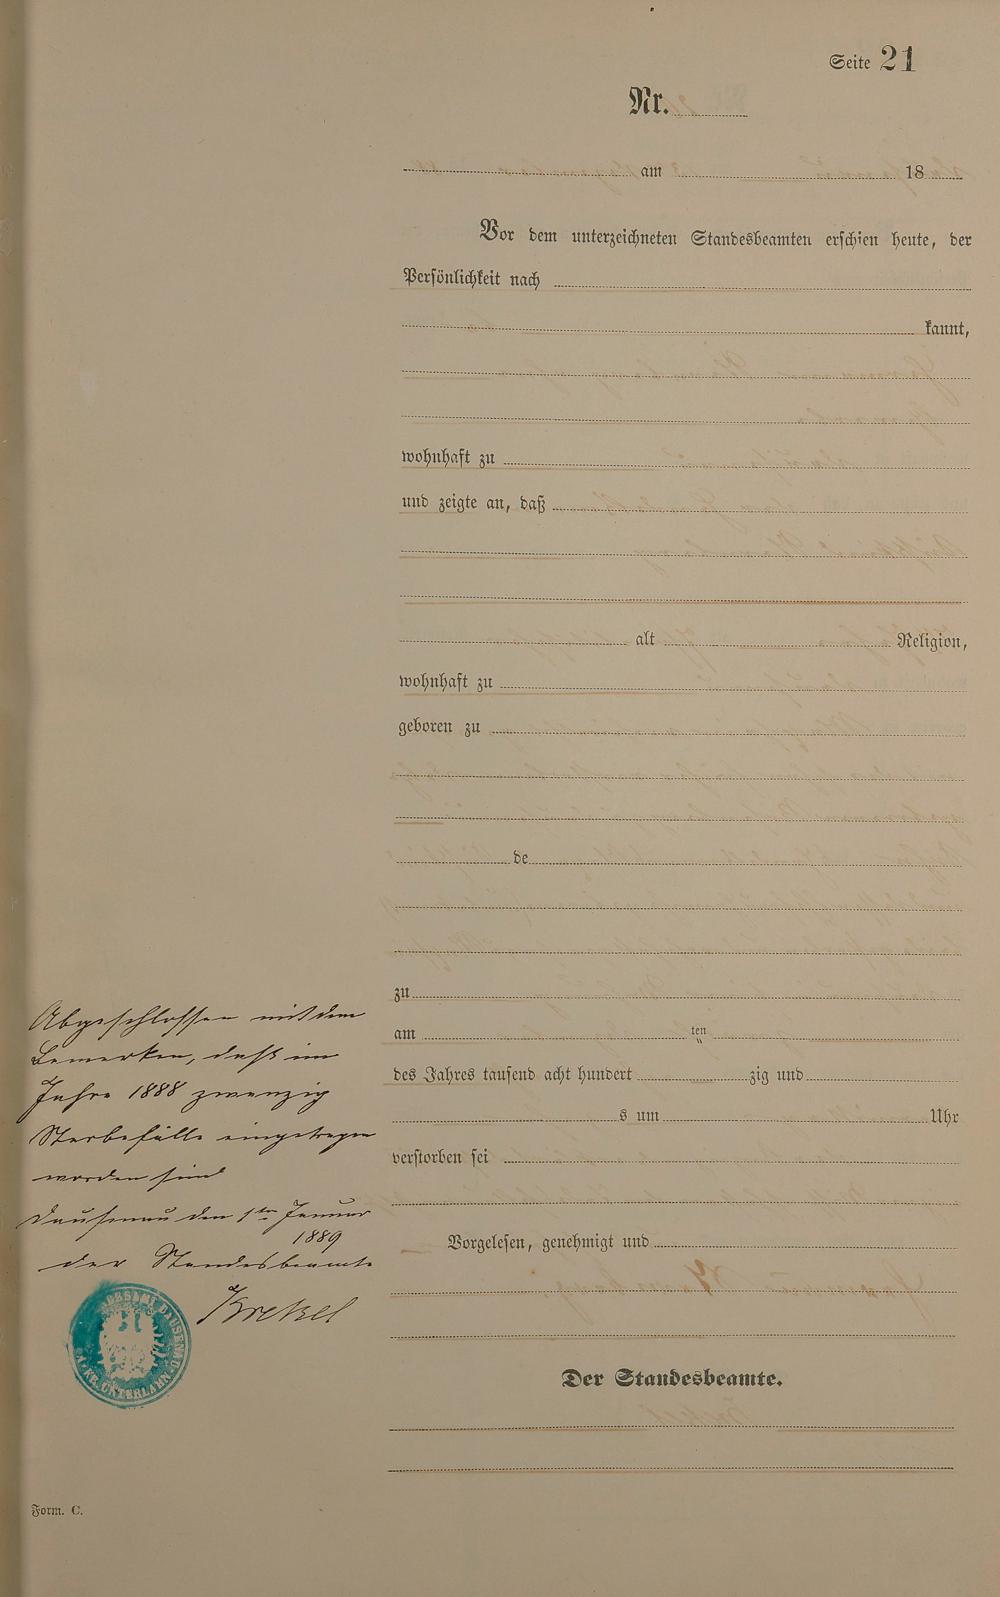 Seite 21
Nr.
am 18
Vor dem unterzeichneten Standesbeamten erschien heute, der
Persönlichkeit nach
kannt,
wohnhaft zu
und zeigte an, daß
alt Religion,
wohnhaft zu
geboren zu
de
zu
am ten
des Jahres tausend acht hundert zig und
s um Uhr
verstorben sei
Vorgelesen, genehmigt und
Der Standesbeamte.
Abgeschlossen mit dem
Bemerken, daß im
Jahre 1888 zwanzig
Sterbefälle eingetragen
worden sind
Dausenau den 1ten Januar
1889
der Standesbeamte
STANDESAMT DAUSENAU
KR. UNTERLAHN
Form. C.